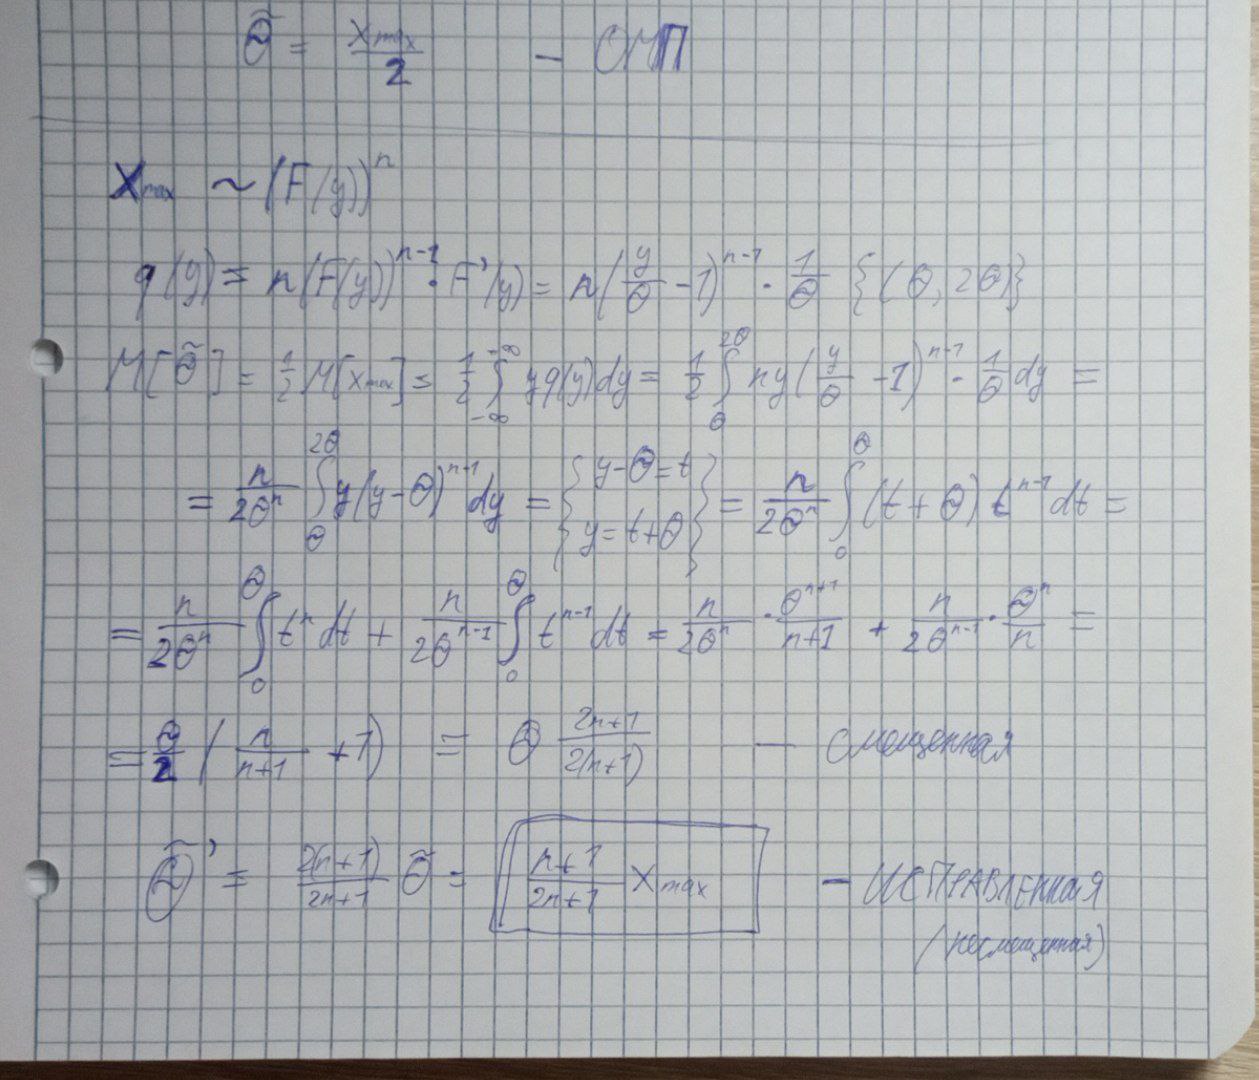 θ̃ = X_max/2 — ОМП
X_max ~ (F(y))^n
q(y) = n(F(y))^{n-1} · F'(y) = n(y/θ - 1)^{n-1} · 1/θ {(θ, 2θ)}
M[θ̃] = 1/2 M[X_max] = 1/2 ∫_{-∞}^{-∞} y q(y) dy = 1/2 ∫_θ^{2θ} ny(y/θ - 1)^{n-1} · 1/θ dy =
= n/(2θ^n) ∫_θ^{2θ} y(y-θ)^{n+1} dy = {y-θ=t y=t+θ} = n/(2θ^n) ∫_0^θ (t+θ) t^{n-1} dt =
= n/(2θ^n) ∫_0^θ t^n dt + n/(2θ^{n-1}) ∫_0^θ t^{n-1} dt = n/(2θ^n) · θ^{n+1}/(n+1) + n/(2θ^{n-1}) · θ^n/n =
= θ/2 (n/(n+1) + 1) = θ (2n+1)/(2(n+1)) — смещенная
θ̃' = 2(n+1)/(2n+1) θ̃ = (n+1)/(2n+1) X_max — ИСПРАВЛЕННАЯ
(несмещенная)